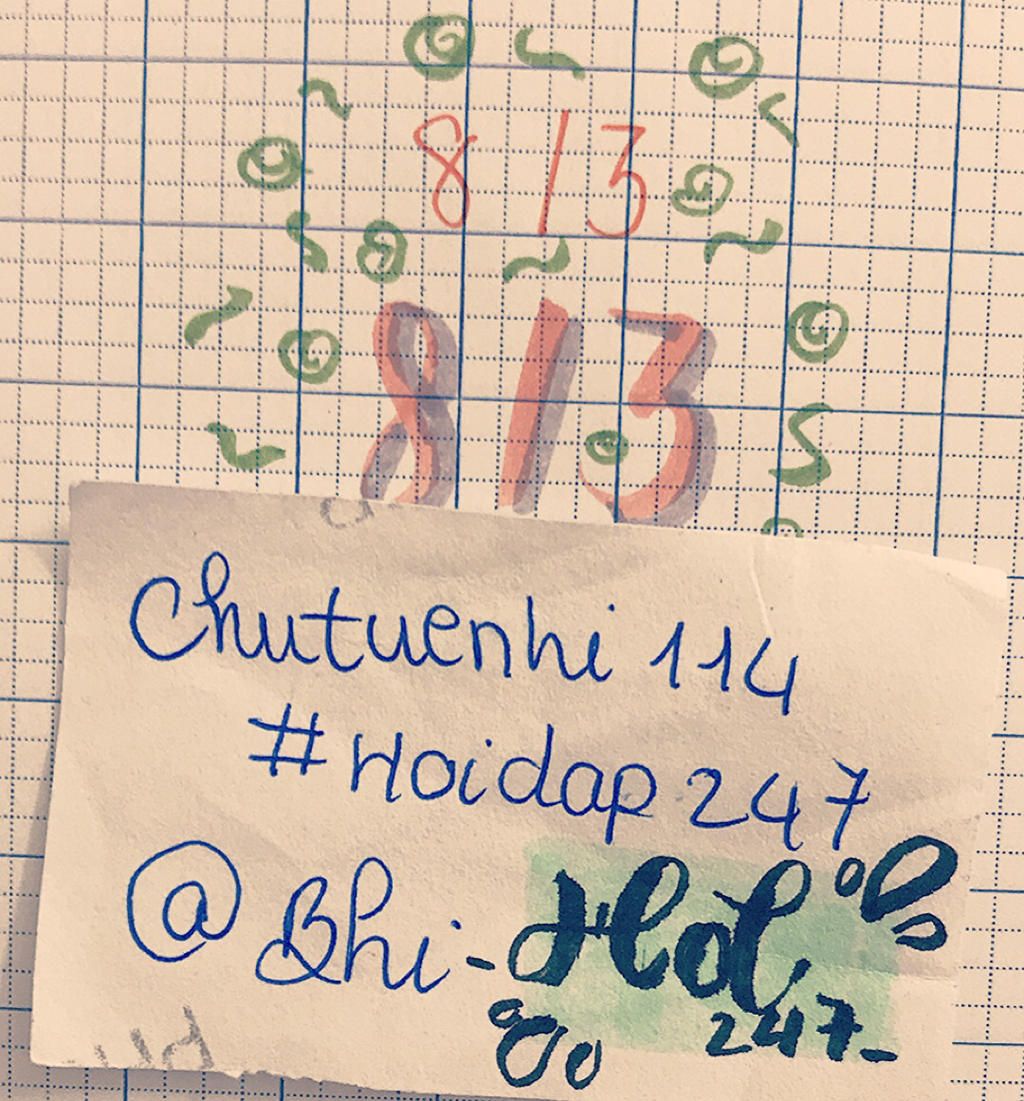 8/3
8/3
Chutuenhi 114
#Hoidap247
@Bhi-
247-